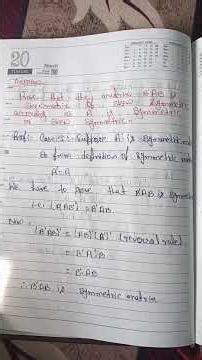 20
March
Prove that the matrix B'AB is
symmetric or skew symmetric
according as A is symmetric
or skew symmetric.
Proof: Case I: Suppose A is symmetric
So from definition of symmetric
A' = A
We have to prove that B'AB is symmetric
i.e. (B'AB)' = B'AB
Now
(B'AB)' = (AB)'(B')' (reversal rule)
= B'A'B
= B'AB
∴ B'AB is symmetric matrix